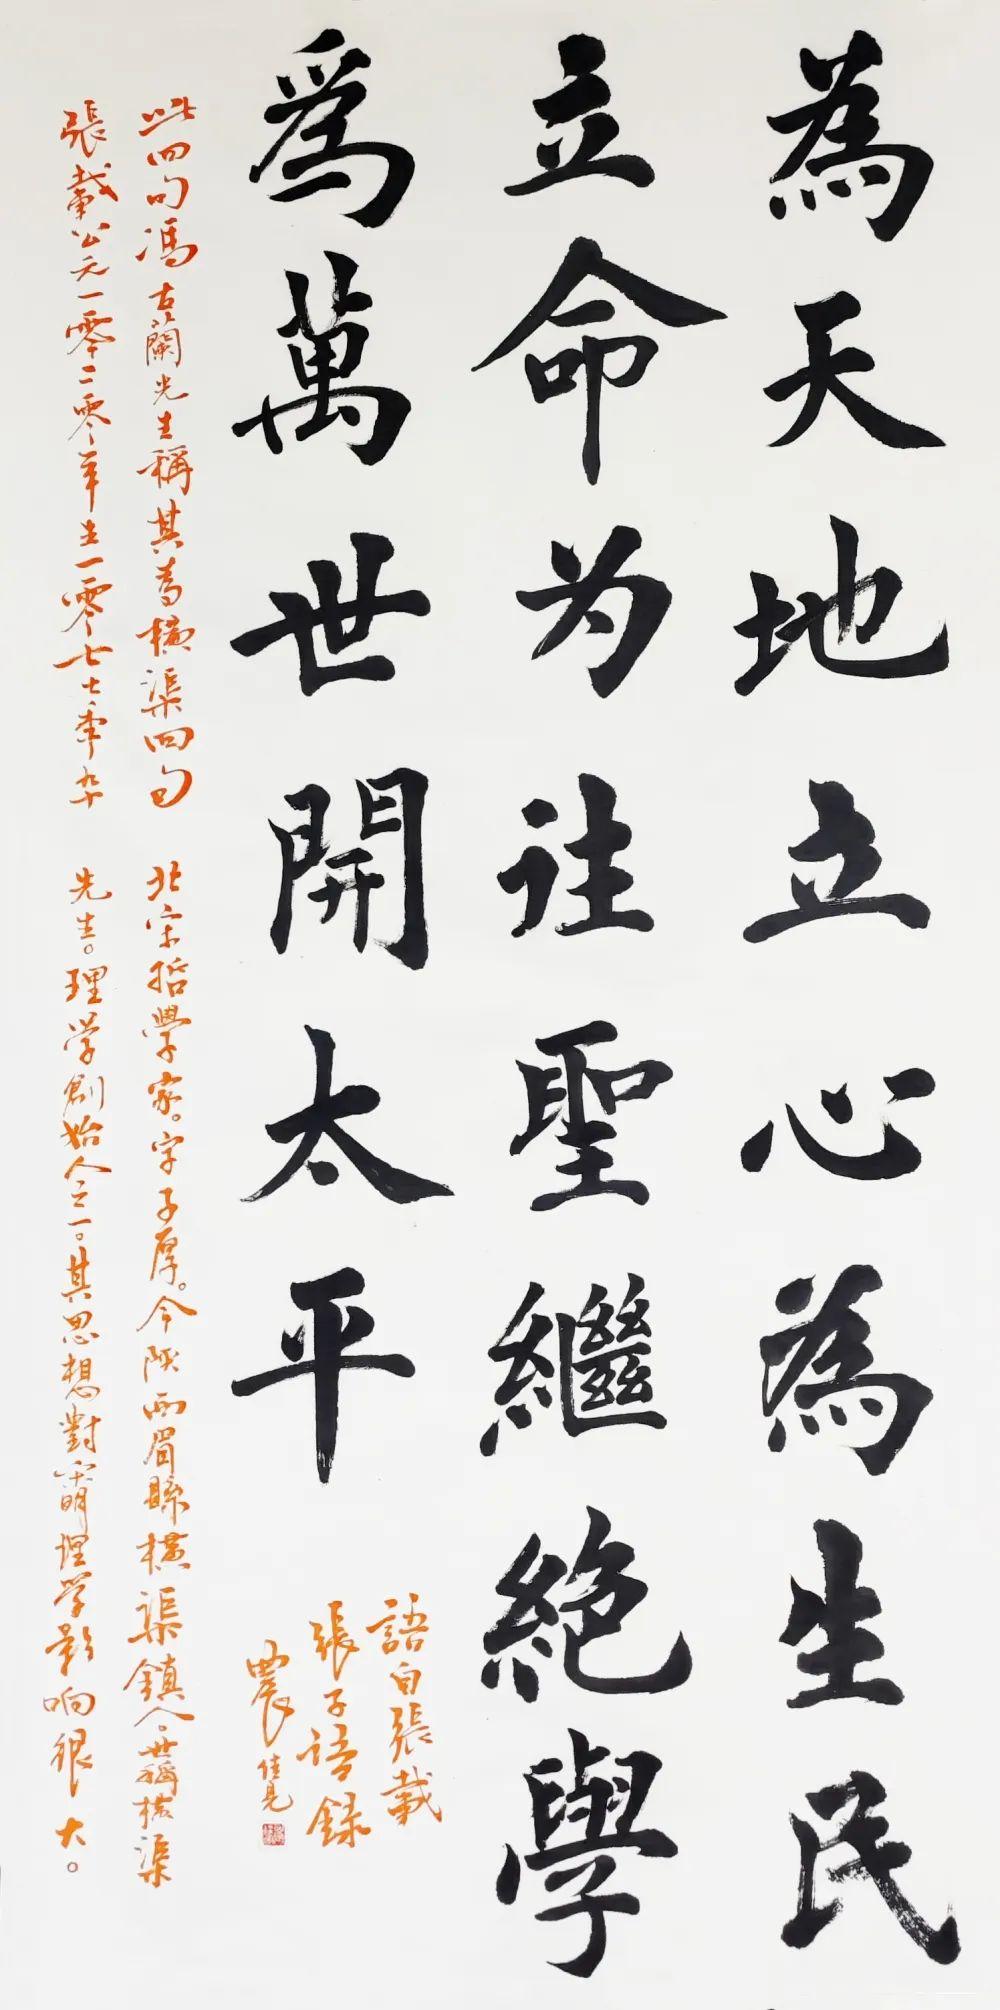 為天地立心為生民
立命为往聖繼絕學
爲萬世開太平
語自張載
張子语録
農佳見
此四句馮古蘭先生稱其為橫渠四句
張載公元一零二零年生一零七七年卒
北宋哲學家。字子厚。今陝西眉縣橫渠鎮人世稱橫渠
先生。理学創始人之一。其思想對宋明理学影响很大。